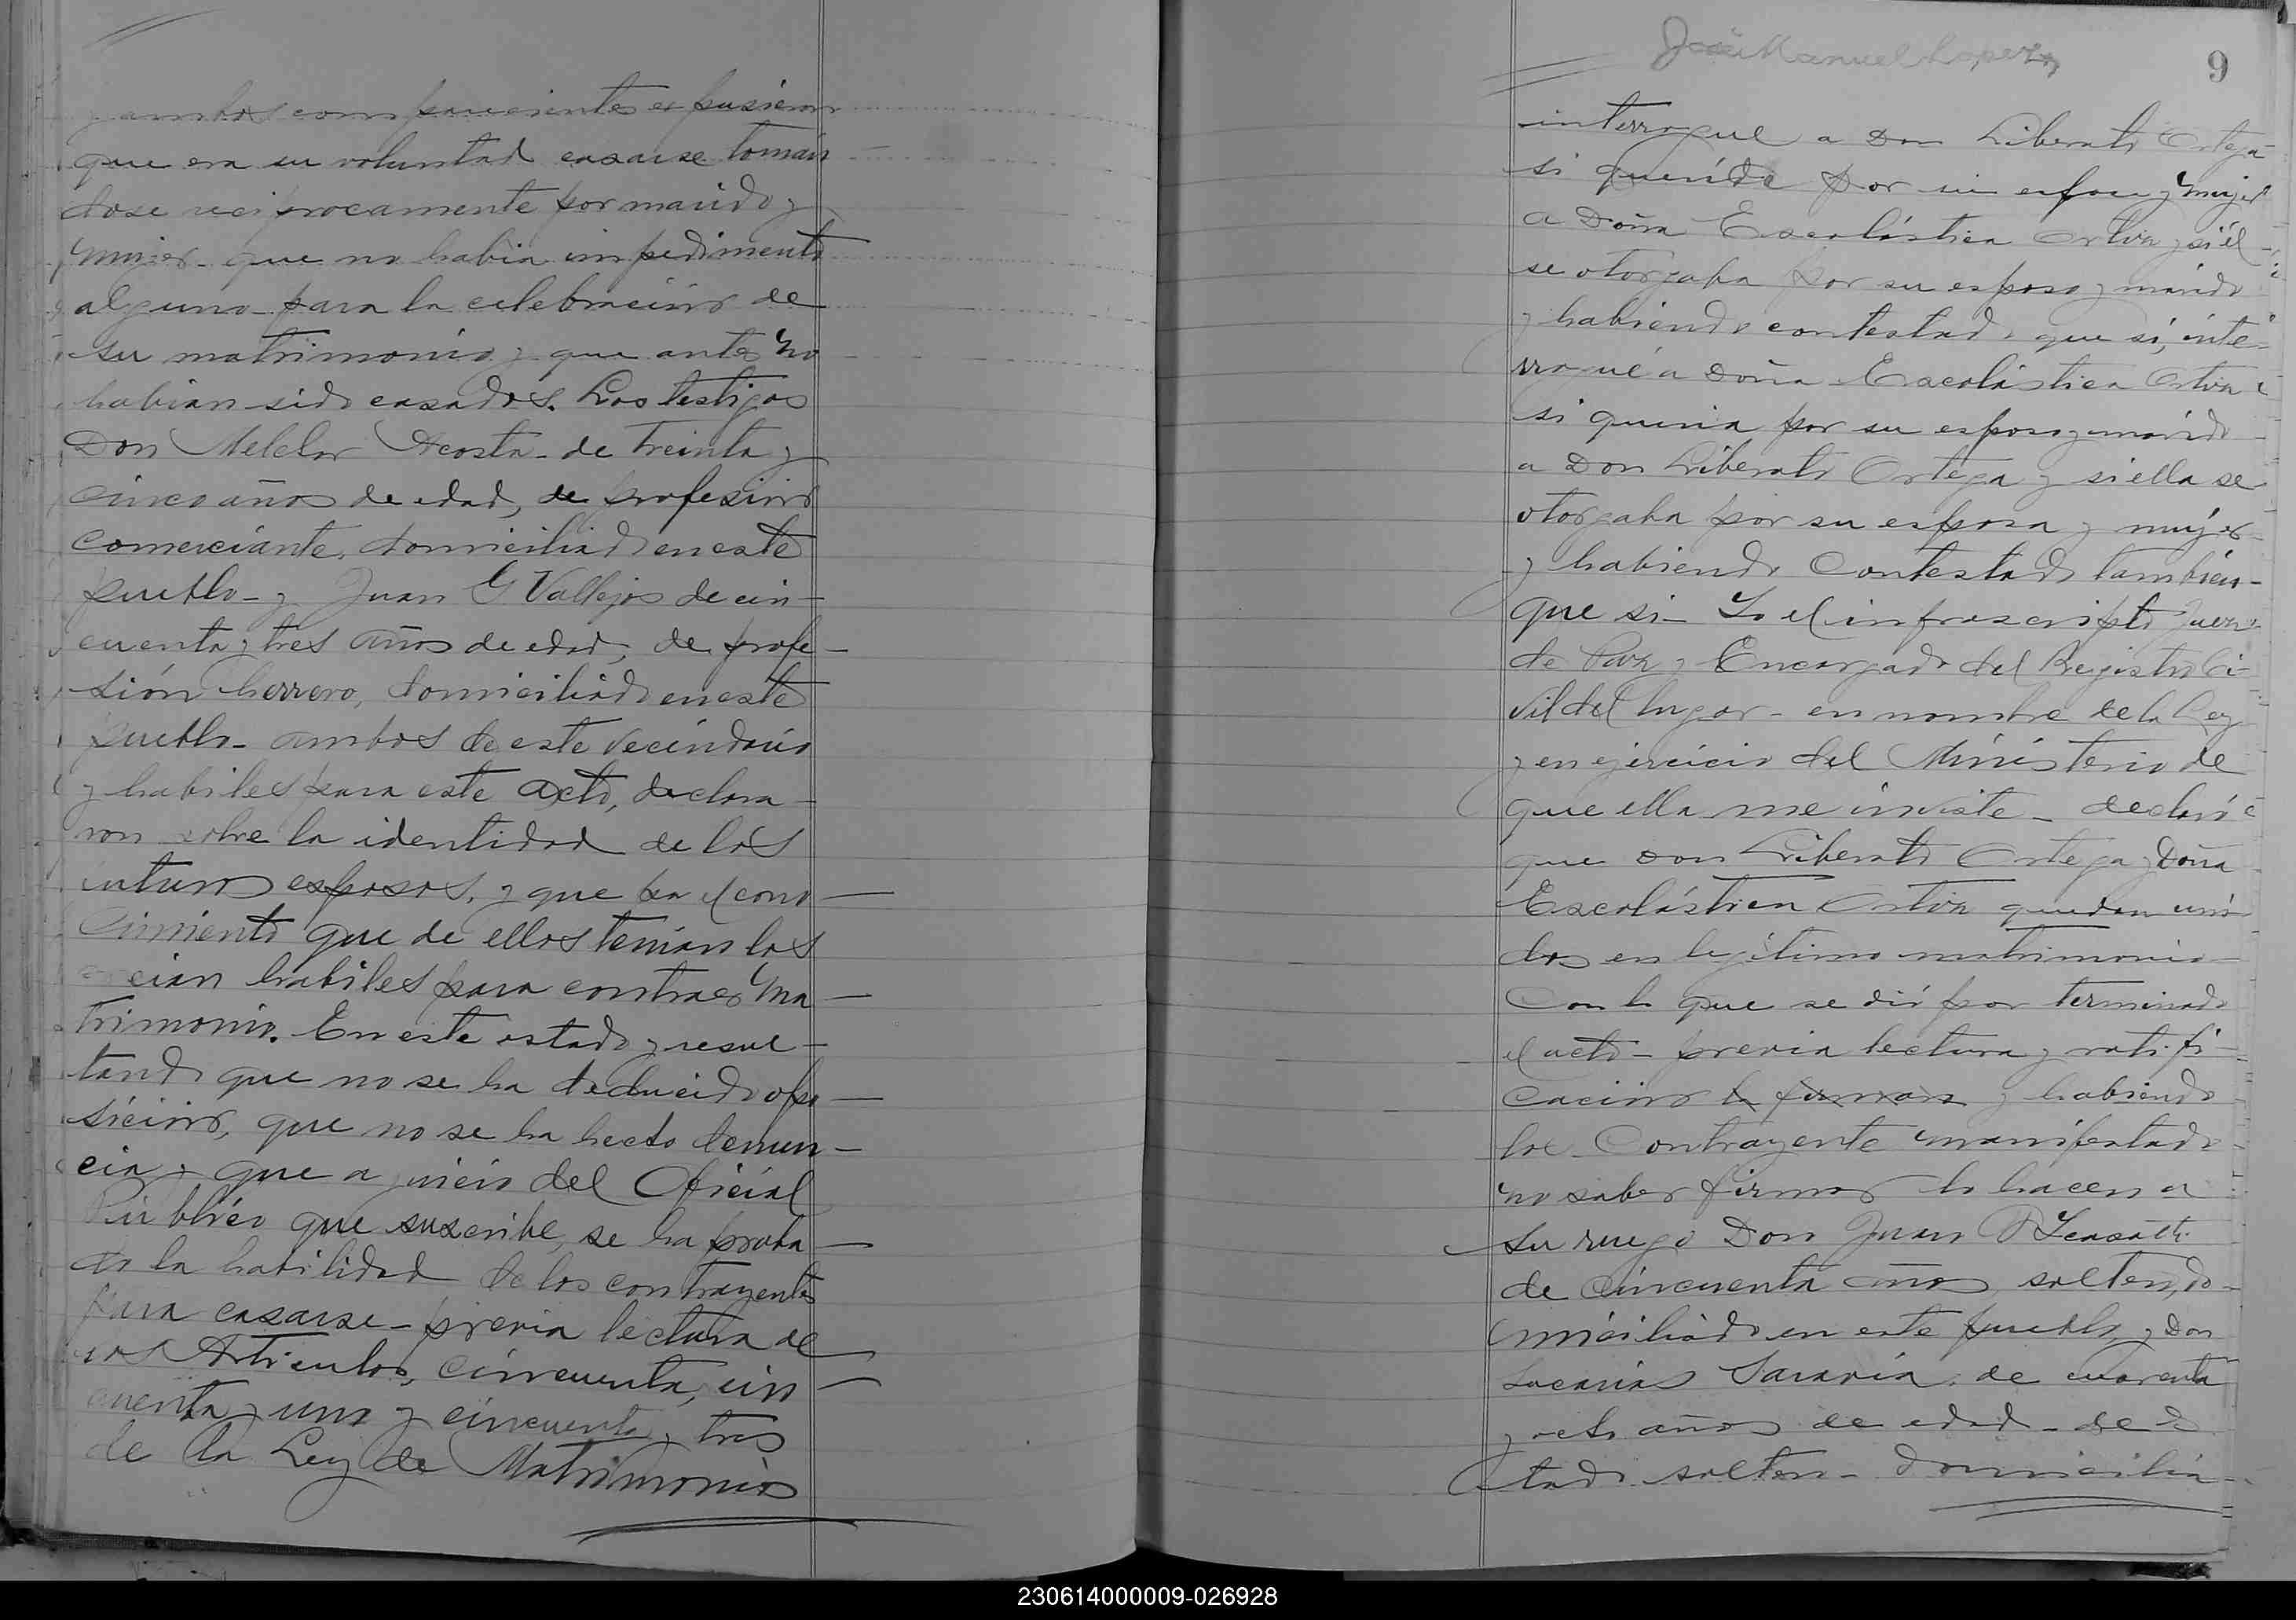 y ambos comparecientes expusieron
que era su voluntad casarse tomán
dose reciprocamente por marido y
mujer - que no habia impedimento
alguno para la celebración de
su matrimonio y que antes no
habian sido casados. Los testigos
Don Melchor Acosta - de treinta y
cinco años de edad, de profesión
comerciante, domiciliado en este
pueblo - y Juan G. Vallejos de cin-
cuenta y tres años de edad, de profe-
sión herrero, domiciliado en este
pueblo - ambos de este vecindario
y habiles para este acto, declara-
ron sobre la identidad de los
futuros esposos, y que por el cono-
cimiento que de ellos tenian los
creian habiles para contraer ma-
trimonio. En este estado y resul-
tando que no se ha deducido opo-
sición, que no se ha hecho denun-
cia y que a juicio del Oficial
Público que suscribe, se ha proba-
do la habilidad de los contrayentes
para casarse - previa lectura de
los Articulos, cincuenta, cin-
cuenta y uno y cincuenta y tres
de la Ley de Matrimonio
José Manuel Lopez
9
interrogué a Don Liberato Ortega
si queria por su esposa y mujer
a Doña Escolástica y si él
se otorgaba por su esposo y marido
y habiendo contestado que si, inte-
rrogué a Doña Escolástica
si queria por su esposo y marido
a Don Liberato Ortega y si ella se
otorgaba por su esposa y mujer
y habiendo contestado tambien-
que si - Yo el infrascripto Juez
de Paz y Encargado del Registro Ci-
vil del lugar - en nombre de la Ley
y en ejercicio del Ministerio de
que ella me inviste - declaré
que Don Liberato Ortega y Doña
Escolástica quedan uni-
dos en legitimo matrimonio
Con lo que se dió por terminado
el acto - previa lectura y ratifi-
cación lo firman y habiendo
los Contrayente manifestado
no saber firmar lo hacen a
su ruego Don Juan
de cincuenta años, soltero, do-
miciliado en este pueblo, y Don
Sararia, de cuarenta
y ocho años de edad - de es
tado soltero - domicilia-
230614000009-026928